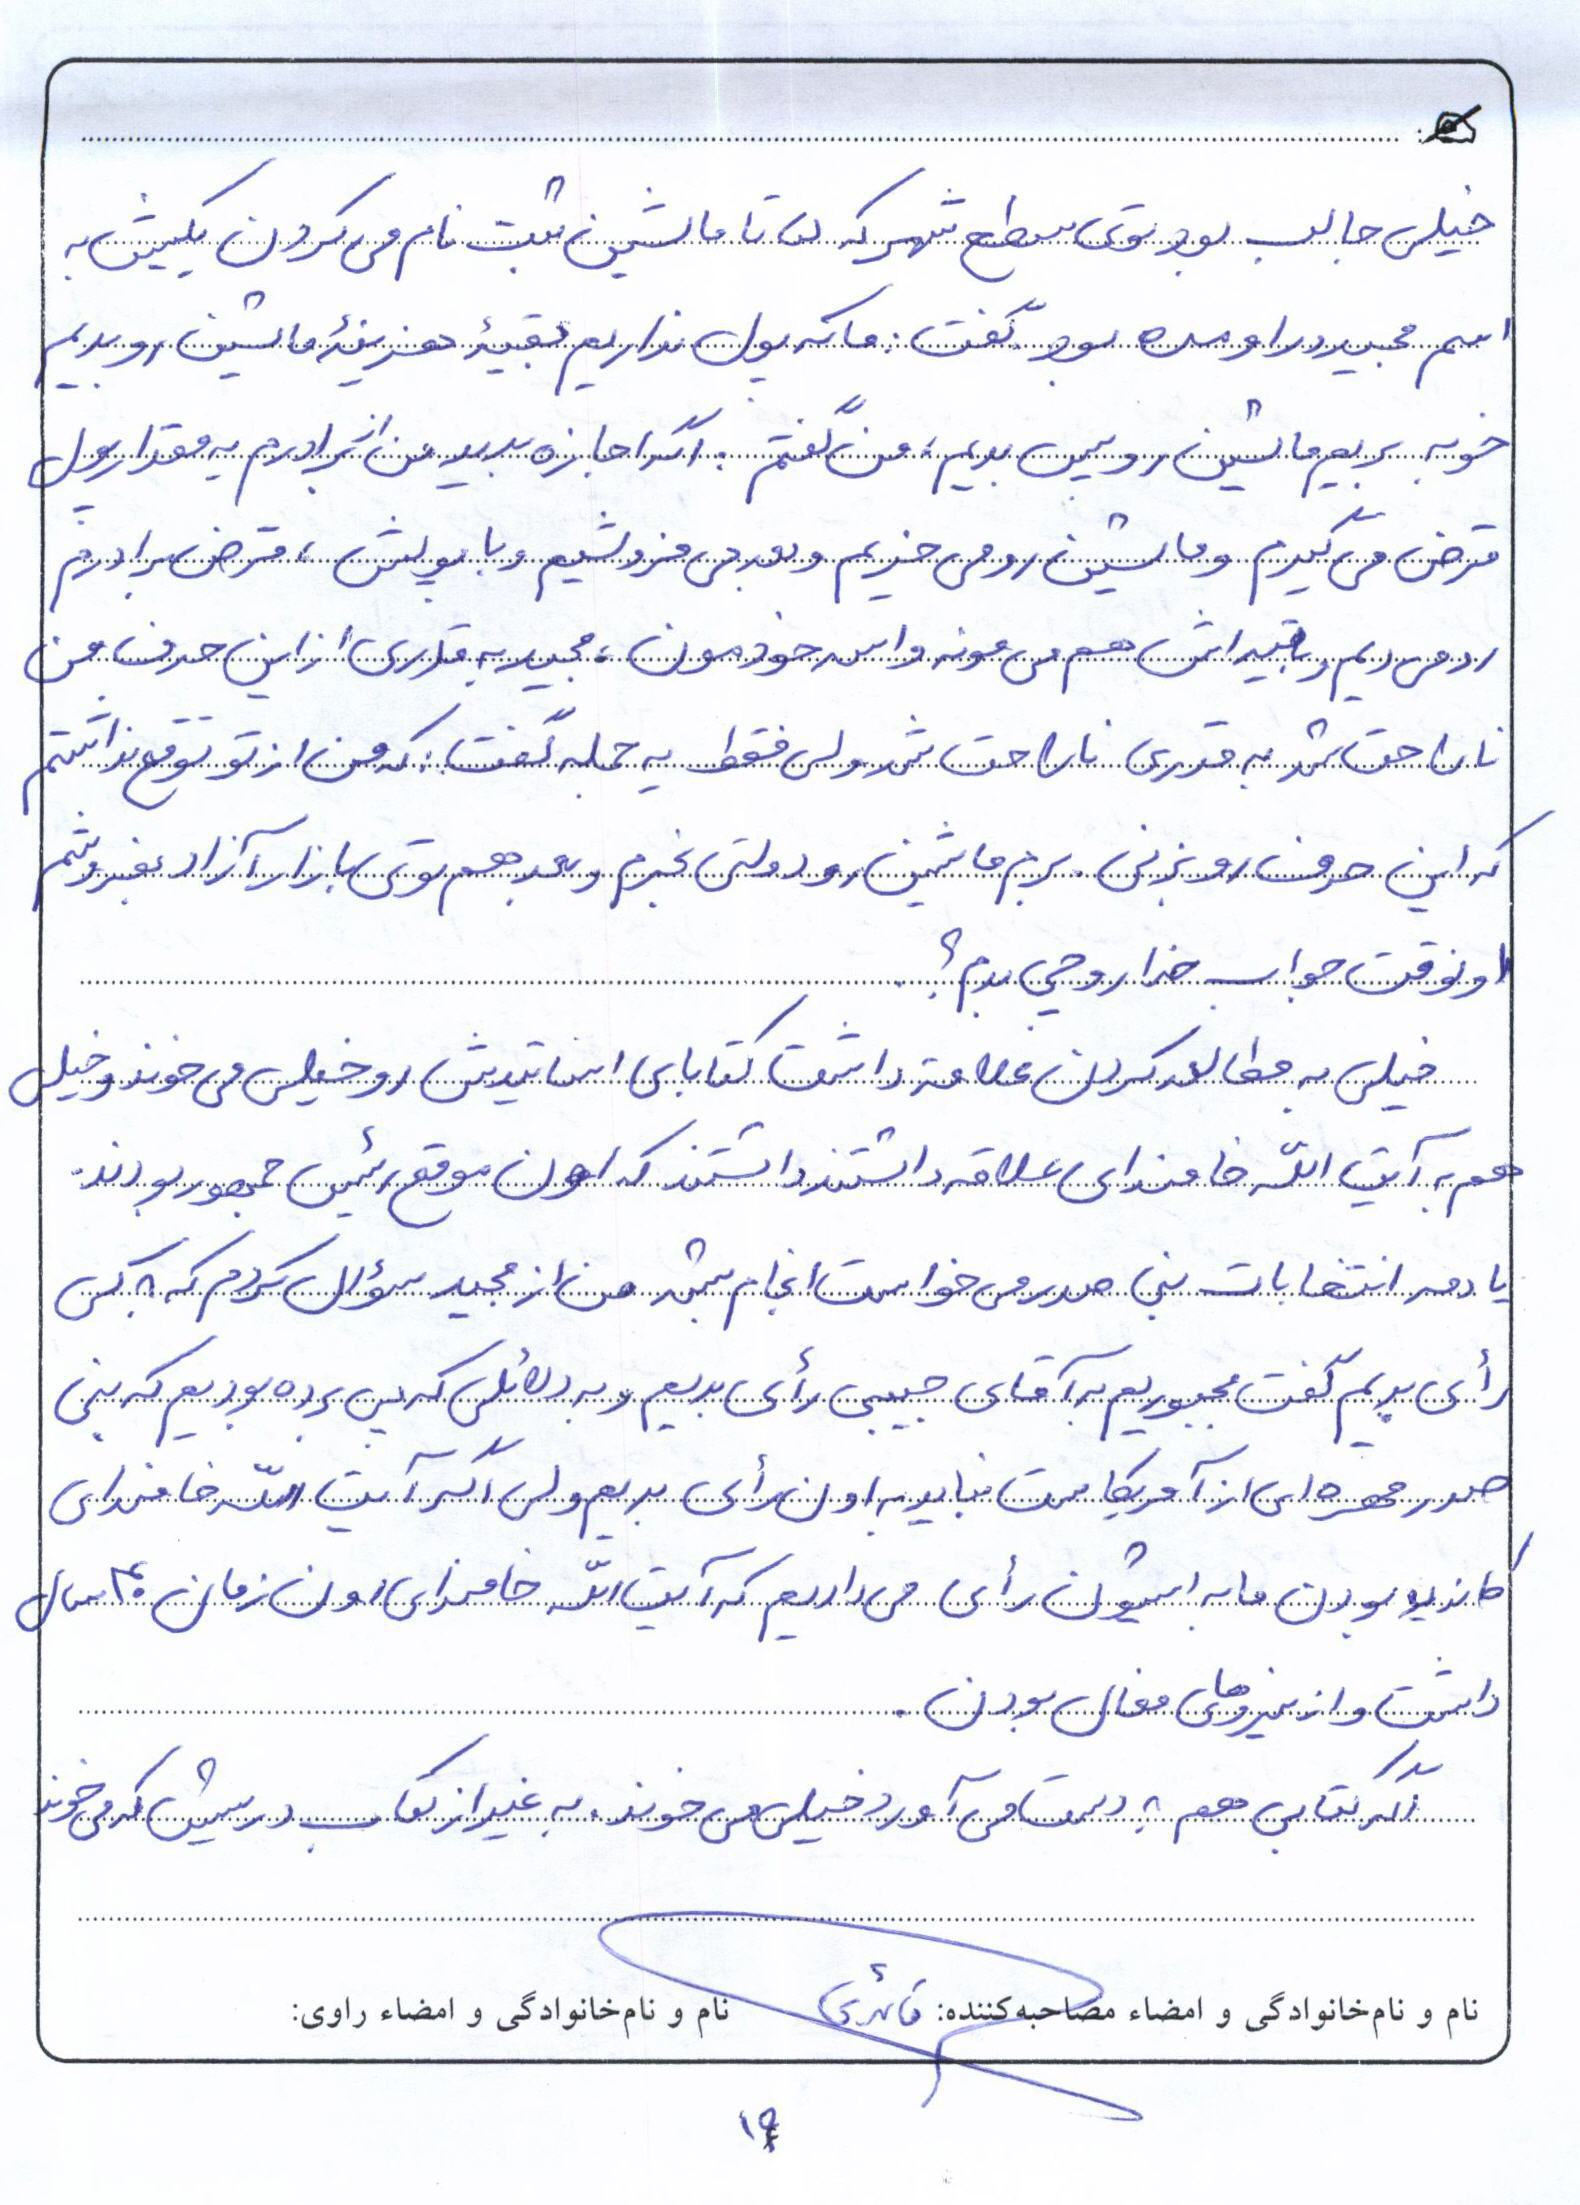 خیلی جالب بود توی سطح شهر که تا ماشین ثبت نام می کردن یکیش به
اسم مجید دراومده بود. گفت: ما که پول نداریم بقیهٔ هزینهٔ ماشین رو بدیم
خوبه بریم ماشین رو پس بدیم، من گفتم: اگر اجازه بدید من از برادرم یه مقدار پول
قرض می گیرم و ماشین رو می خریم و بعد می فروشیم و با پولش، قرض برادرم
رد می دیم و بقیه اش هم می مونه واسه خودمون، مجید به قدری از این حرف من
ناراحت شد به قدری ناراحت شد ولی فقط یه جمله گفت: که من از تو توقع نداشتم
که این حرف رو بزنی. برم ماشین رو دولتی بخرم و بعد هم توی بازار آزاد بفروشم
اونوقت جواب خدا رو چی بدم؟
خیلی به مطالعه کردن علاقه داشت کتابای اساتیدش رو خیلی می خوند و خیلی
هم به آیت اللّه خامنه‌ای علاقه داشتند داشتند که اون موقع رئیس جمهور بودند.
یادمه انتخابات بنی صدر می خواست انجام بشه من از مجید سؤال کردم که به کی
رأی بدیم گفت مجبوریم به آقای حبیبی رأی بدیم و به دلائلی که پی برده بودیم که بنی
صدر مهره ای از آمریکاست نباید به اون رأی بدیم ولی اگر آیت اللّه خامنه‌ای
کاندید بودن ما به ایشون رأی می دادیم که آیت اللّه خامنه‌ای اون زمان ۴۰ سال
داشت و از نیروهای فعال بودن.
اگر کتابی هم به دست می آورد خیلی می خوند، به غیر از کتاب درسیش که می خوند
نام و نام‌خانوادگی و امضاء مصاحبه‌کننده: نام و نام‌خانوادگی و امضاء راوی: